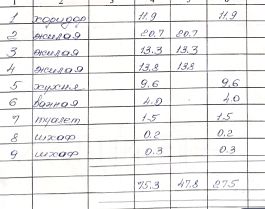 1 коридор 11.9 11.9
2 жилая 20.7 20.7
3 жилая 13.3 13.3
4 жилая 13.8 13.8
5 кухня 9.6 9.6
6 ванная 4.0 4.0
7 туалет 1.5 1.5
8 шкаф 0.2 0.2
9 шкаф 0.3 0.3
75.3 47.8 27.5